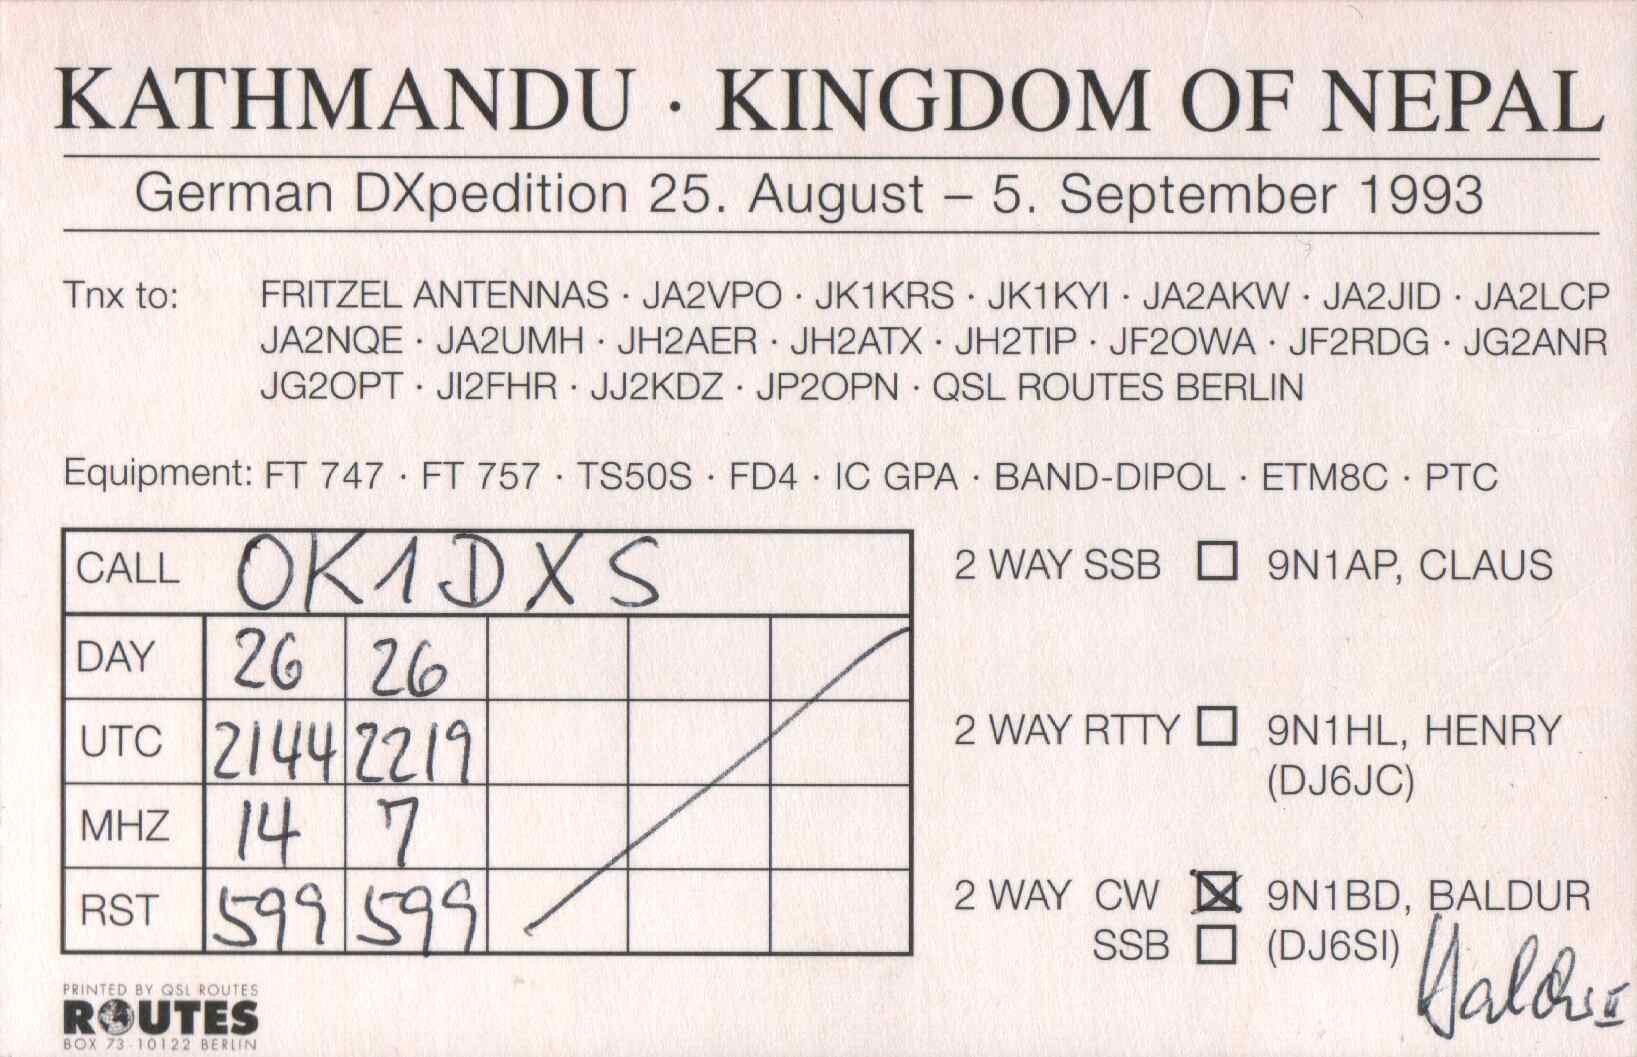 KATHMANDU · KINGDOM OF NEPAL
German DXpedition 25. August – 5. September 1993
Tnx to: FRITZEL ANTENNAS · JA2VPO · JK1KRS · JK1KYI · JA2AKW · JA2JID · JA2LCP
JA2NQE · JA2UMH · JH2AER · JH2ATX · JH2TIP · JF2OWA · JF2RDG · JG2ANR
JG2OPT · JI2FHR · JJ2KDZ · JP2OPN · QSL ROUTES BERLIN
Equipment: FT 747 · FT 757 · TS50S · FD4 · IC GPA · BAND-DIPOL · ETM8C · PTC
CALL OK1DXS
DAY 26 26
UTC 2144 2219
MHZ 14 7
RST 599 599
2 WAY SSB 9N1AP, CLAUS
2 WAY RTTY 9N1HL, HENRY
(DJ6JC)
2 WAY CW 9N1BD, BALDUR
SSB (DJ6SI)
PRINTED BY QSL ROUTES
ROUTES
BOX 73-10122 BERLIN